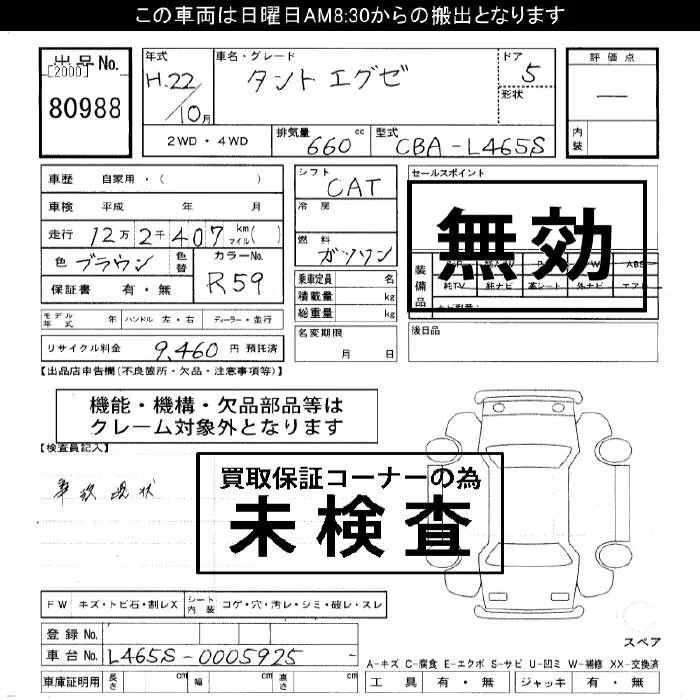 この車両は日曜日AM8:30からの搬出となります
出品No.
[2000]
80988
年式
H.22/10月
車名・グレード
タント エグゼ
ドア
5
形状
評価点
—
内装
2WD・4WD
排気量
660cc
型式
CBA-L465S
車歴 自家用・( )
車検 平成 年 月
走行 12万2千407 km マイル( )
色 ブラウン 色替
カラーNo.
R59
保証書 有・無
シフト
CAT
冷房
燃料
ガソリン
乗車定員 名
積載量 kg
総重量 kg
セールスポイント
無効
装備品
ABS
純TV 純ナビ 革シート 外ナビ エアB
モデル年式 年 ハンドル 左・右 ディーラー・並行
リサイクル料金 9,460 円 預託済
名変期限
月 日
後日品
【出品店申告欄(不良箇所・欠品・注意事項等)】
機能・機構・欠品部品等は
クレーム対象外となります
【検査員記入】
買取保証コーナーの為
未検査
事故現状
FW キズ・トビ石・割レX シート内装 コゲ・穴・汚レ・シミ・破レ・スレ
登録No.
車台No. L465S-0005925
車庫証明用 長さ cm 幅 cm 高さ cm
スペア
A-キズ C-腐食 E-エクボ S-サビ U-凹ミ W-補修 XX-交換済
工具 有・無 ジャッキ 有・無